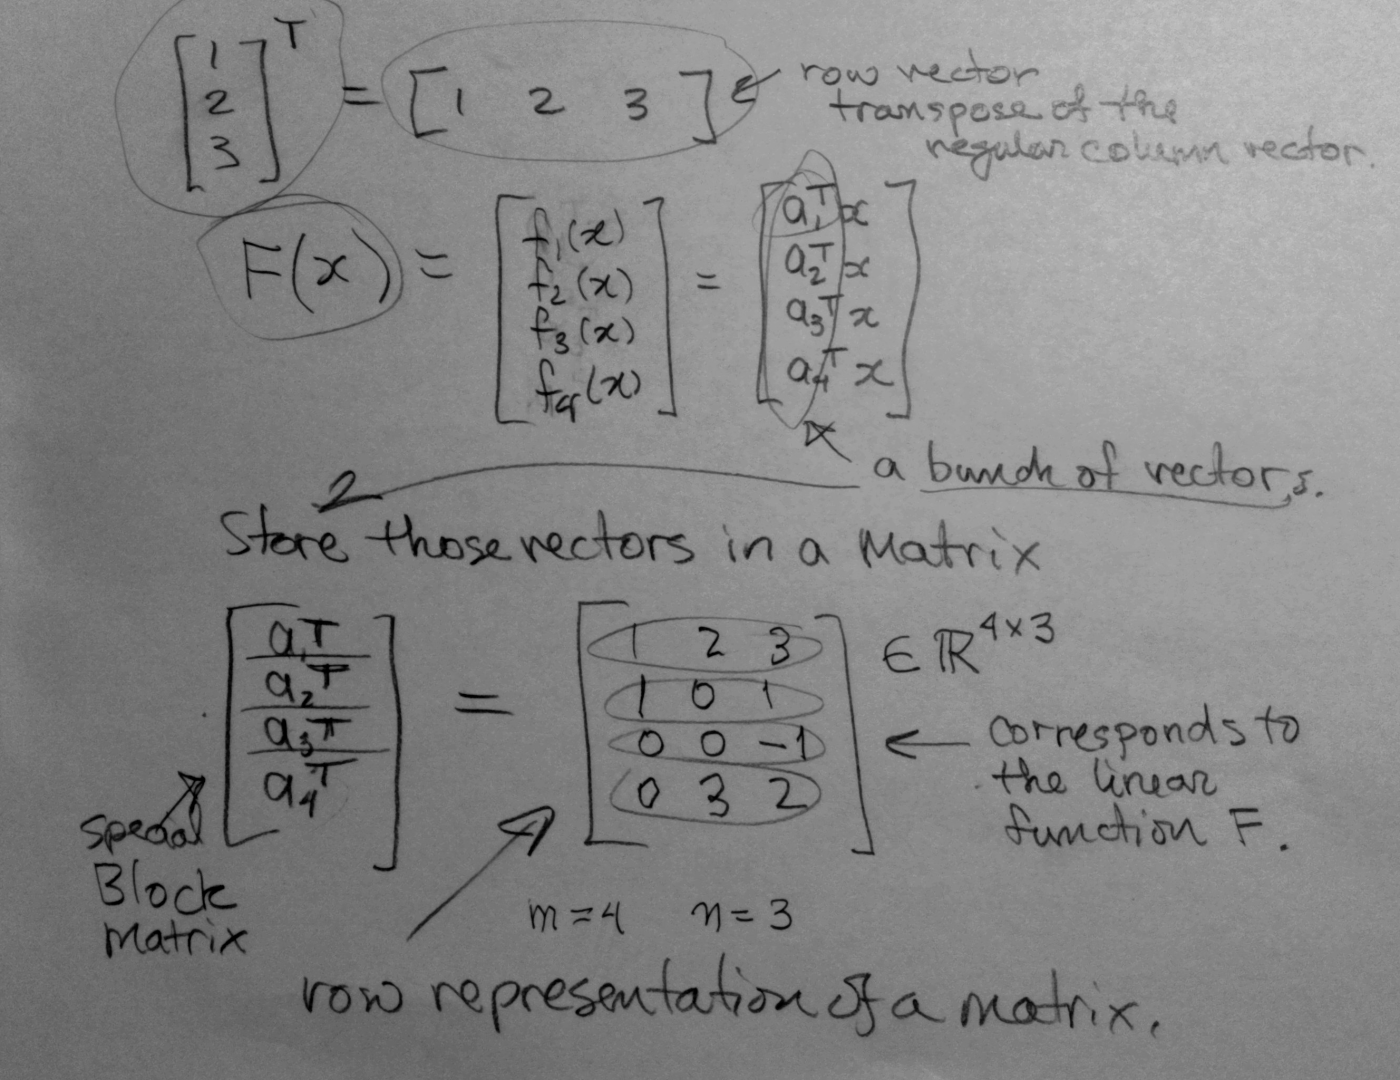 [1 2 3]^T = [1 2 3] ← row vector
transpose of the
regular column vector.
F(x) = [f₁(x) f₂(x) f₃(x) f₄(x)] = [a₁ᵀx a₂ᵀx a₃ᵀx a₄ᵀx]
a bunch of vectors.
Store those vectors in a Matrix
[a₁ᵀ
a₂ᵀ
a₃ᵀ
a₄ᵀ]
=
[1 2 3
1 0 1
0 0 -1
0 3 2]
∈ ℝ^4×3
← corresponds to
the linear
function F.
special
Block
Matrix
m=4 n=3
row representation of a matrix.